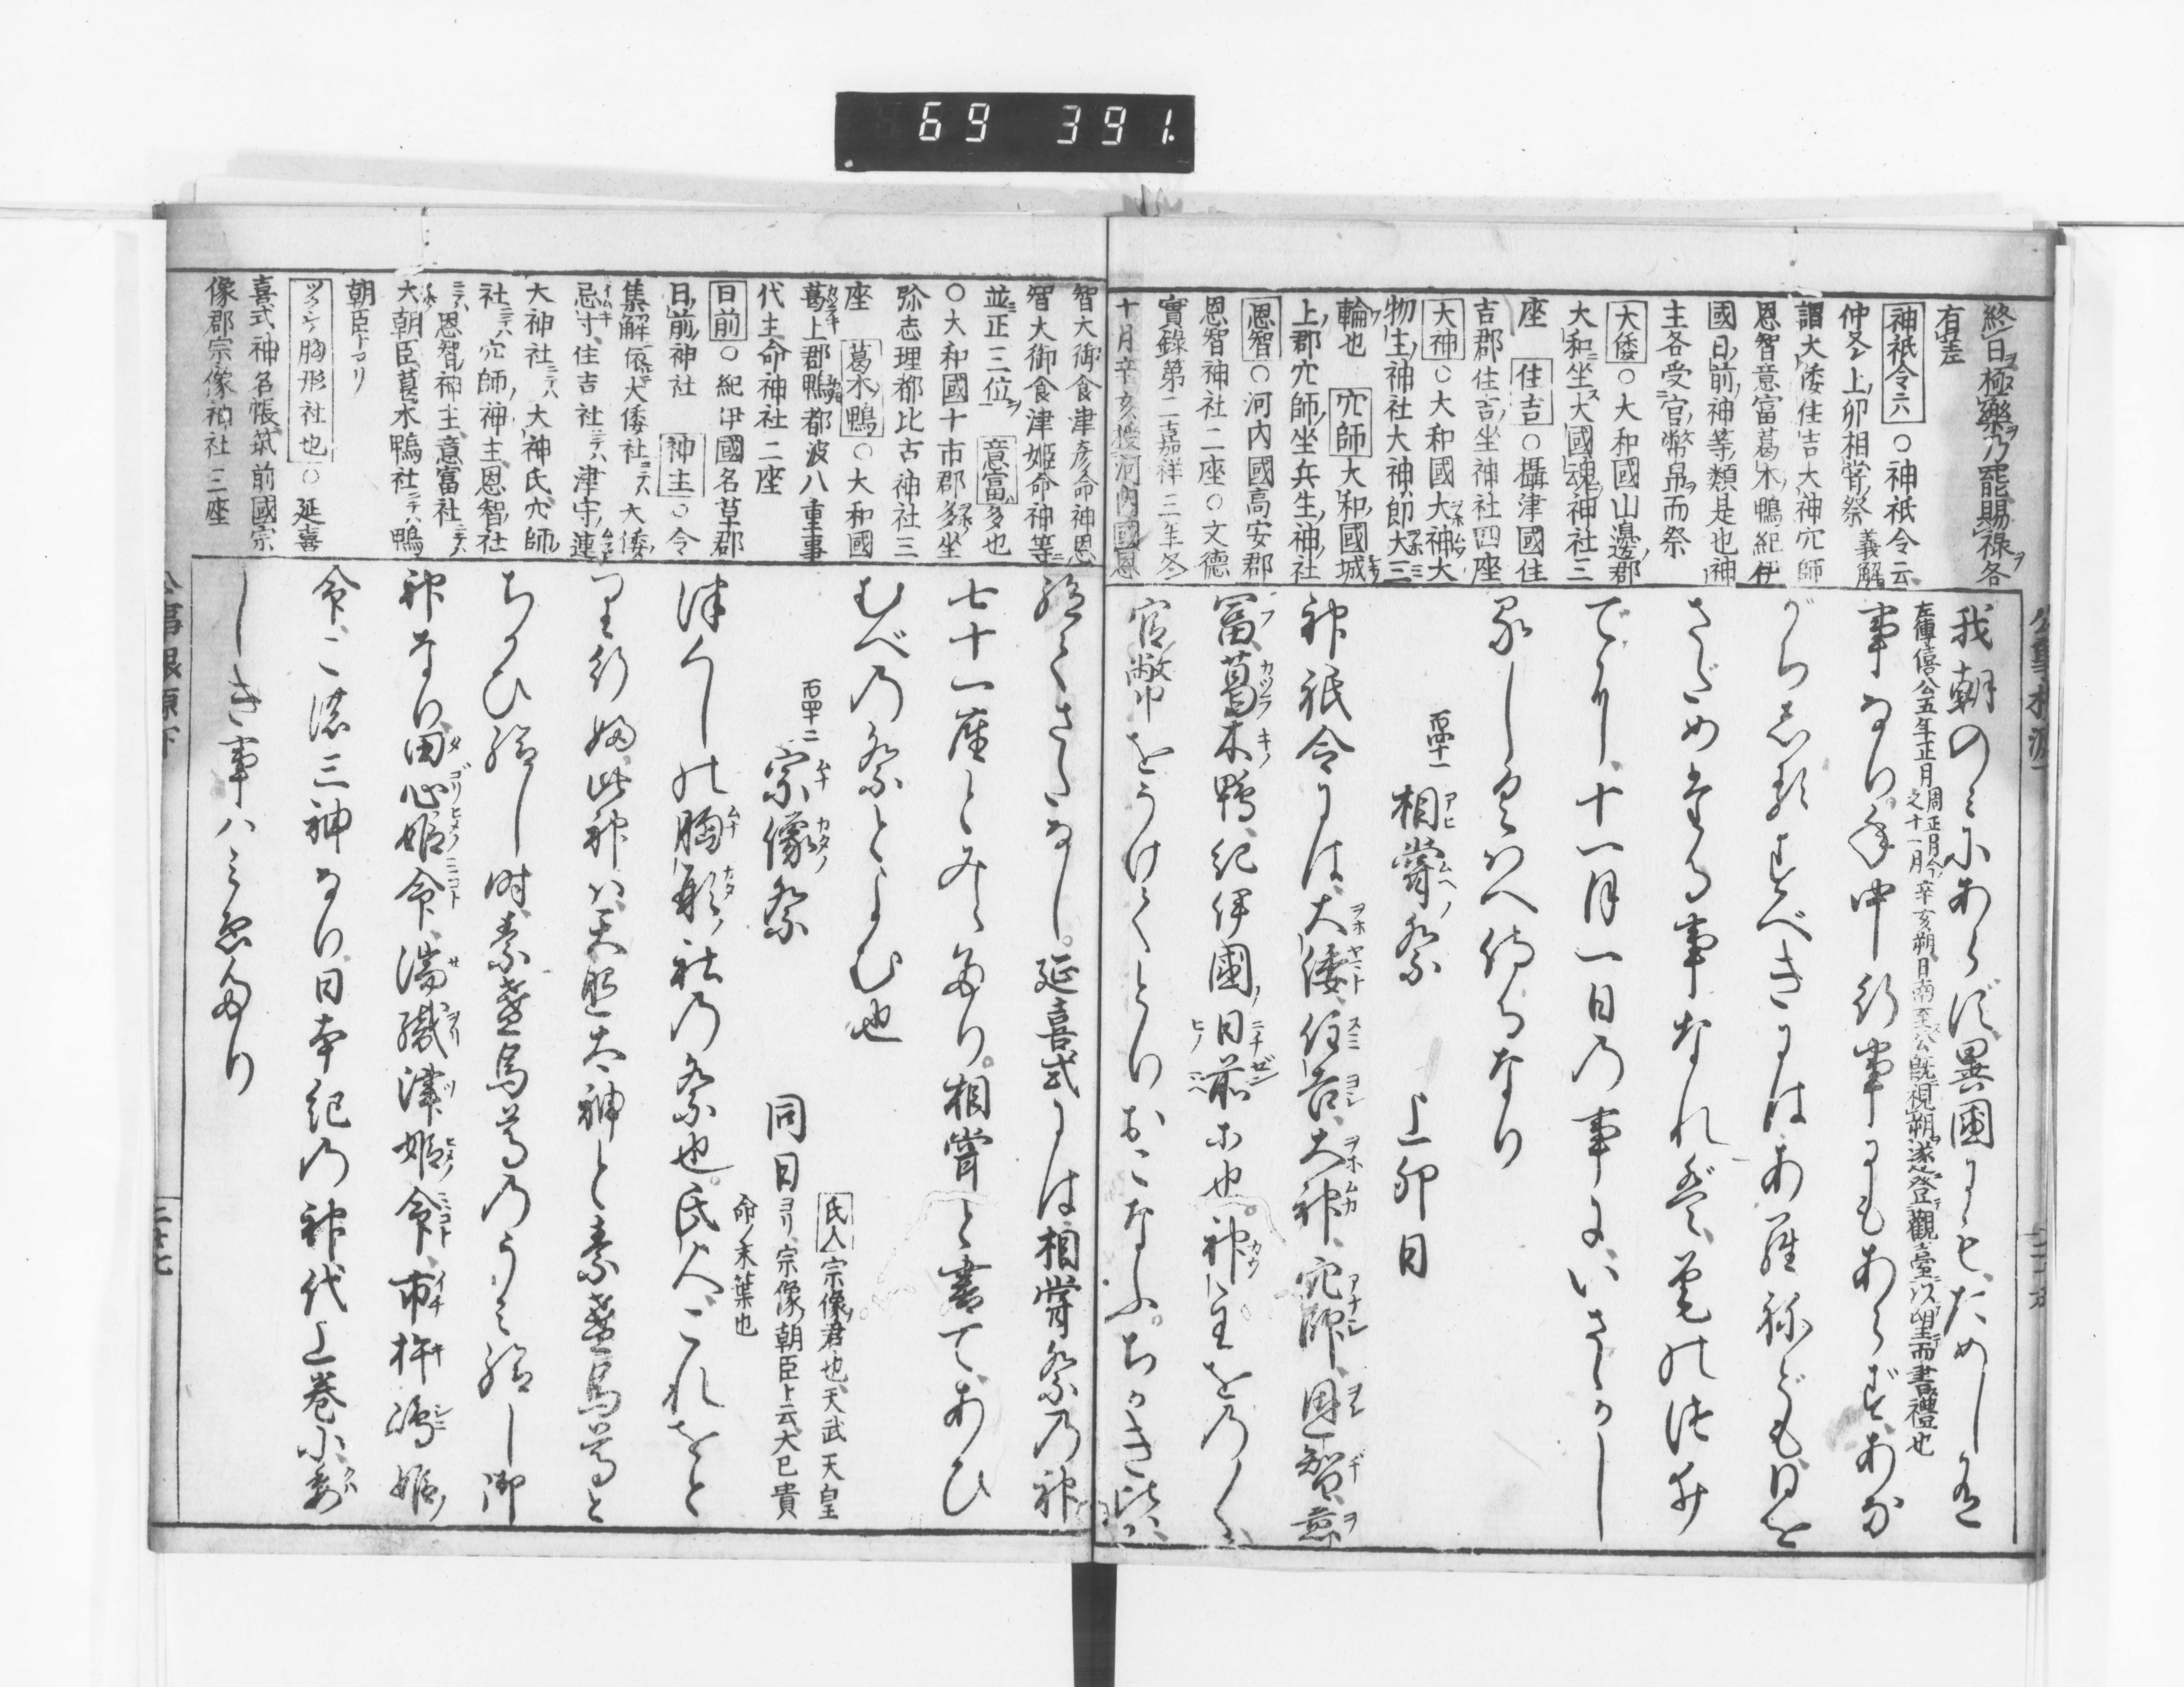 69 391
終日極藥乃罷賜禄各
有差
神祇令六○神祇令云
仲冬上卯相嘗祭 義解
謂大倭住吉大神穴師
恩智意富葛木鴨紀伊
國日前神等類是也神
主各受官幣帛而祭
大倭○大和國山邊郡
大和坐大國魂神社三
座 住吉○攝津國住
吉郡住吉坐神社四座
大神○大和國大神大
物主神社大神節大三
輪也 穴師大和國城
上郡穴師坐兵主神社
恩智○河内國高安郡
恩智神社二座○文徳
實錄第二嘉祥三年冬
十月辛亥授河内國恩
我朝のみにあらず異國にもためし有
左傳僖公五年正月周正月今之十一月辛亥朔日南至公既視朔遂登觀臺以望而書禮也
事なり年中行事にもあらずあな
がち志るすべきにはあらねども日を
さだめたる事なれば
でに十一月一日の事にいさゝか
くはへ侍るなり
百四十一 相嘗祭 上卯日
神祇令には大倭住吉大神穴師恩智意
冨葛木鴨紀伊國日前等也神主をの〱
官幣をうけてとりおこなふちかき比は
智大御食津彦命神恩
智大御食津姫命神等
並正三位 意富多也
○大和國十市郡多坐
弥志理都比古神社三
座 葛木鴨○大和國
葛上郡鴨都波八重事
代主命神社二座
日前○紀伊國名草郡
日前神社 神主○令
集解依大倭社ニテハ大倭
忌寸住吉社ニテハ津守連
大神社ニテハ大神氏穴師
社ニテハ穴師神主恩智社
ニテハ恩智神主意富社ニテハ
大朝臣葛木鴨社ニテハ鴨
朝臣トアリ
胸形社也○延喜
喜式神名帳筑前國宗
像郡宗像神社三座
絶てさたなし延喜式には相嘗祭乃神
七十一座とみえたり相嘗と書てあひ
むべの祭とよむ也
百四十二 宗像祭 同日
氏人宗像君也天武天皇
ヨリ宗像朝臣ト云大已貴
命ノ末葉也
津くしの胸形社の祭也氏人これをと
り行ふ此神ハ天照太神と素盞烏尊と
ちかひ給し時素盞烏尊のうみ給し御
神なり田心姫命湍織津姫命市杵嶋姫
命この三神なり日本紀の神代上巻に委
しき事ハみえたり